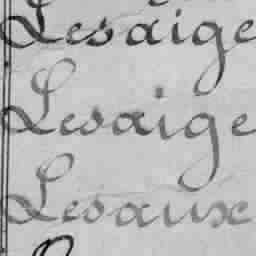 Lesaige
Lesaige
Lesaux